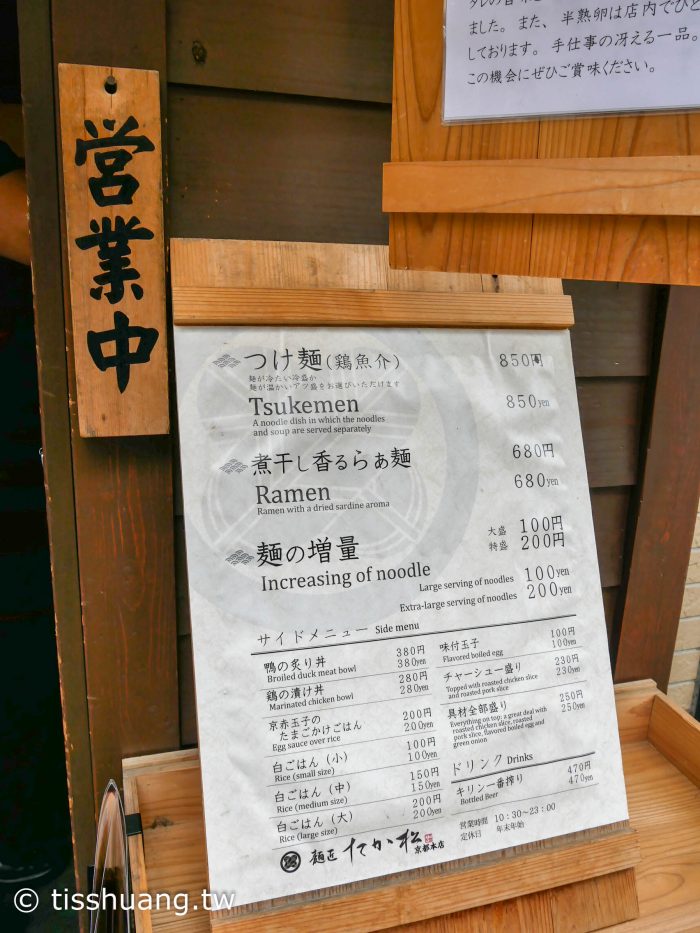 タレの
ました。また、半熟卵は店内でひと
しております。手仕事の冴える一品。
この機会にぜひご賞味ください。
営業中
つけ麺(鶏魚介) 850円
麺が冷たい冷盛か
麺が温かいアツ盛をお選びいただけます
Tsukemen 850yen
A noodle dish in which the noodles
and soup are served separately
煮干し香るらぁ麺 680円
Ramen 680yen
Ramen with a dried sardine aroma
麺の増量 大盛 100円
特盛 200円
Increasing of noodle
Large serving of noodles 100yen
Extra-large serving of noodles 200yen
サイドメニュー Side menu
鴨の炙り丼 380円
Broiled duck meat bowl 380yen
鶏の漬け丼 280円
Marinated chicken bowl 280yen
京赤玉子の
たまごかけごはん 200円
Egg sauce over rice 200yen
白ごはん(小) 100円
Rice (small size) 100yen
白ごはん(中) 150円
Rice (medium size) 150yen
白ごはん(大) 200円
Rice (large size) 200yen
味付玉子 100円
Flavored boiled egg 100yen
チャーシュー盛り 230円
Topped with roasted chicken slice 230yen
and roasted pork slice
具材全部盛り 250円
Everything on top; a great deal with 250yen
roasted chicken slice, roasted
pork slice, flavored boiled egg and
green onion
ドリンク Drinks
キリン一番搾り 470円
Bottled Beer 470yen
営業時間 10:30~23:00
定休日 年末年始
麺匠 たか松 京都本店
© tisshuang.tw